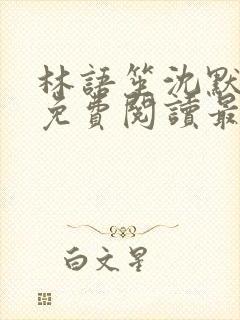 林語笙沈默
免費閱讀最
白文星